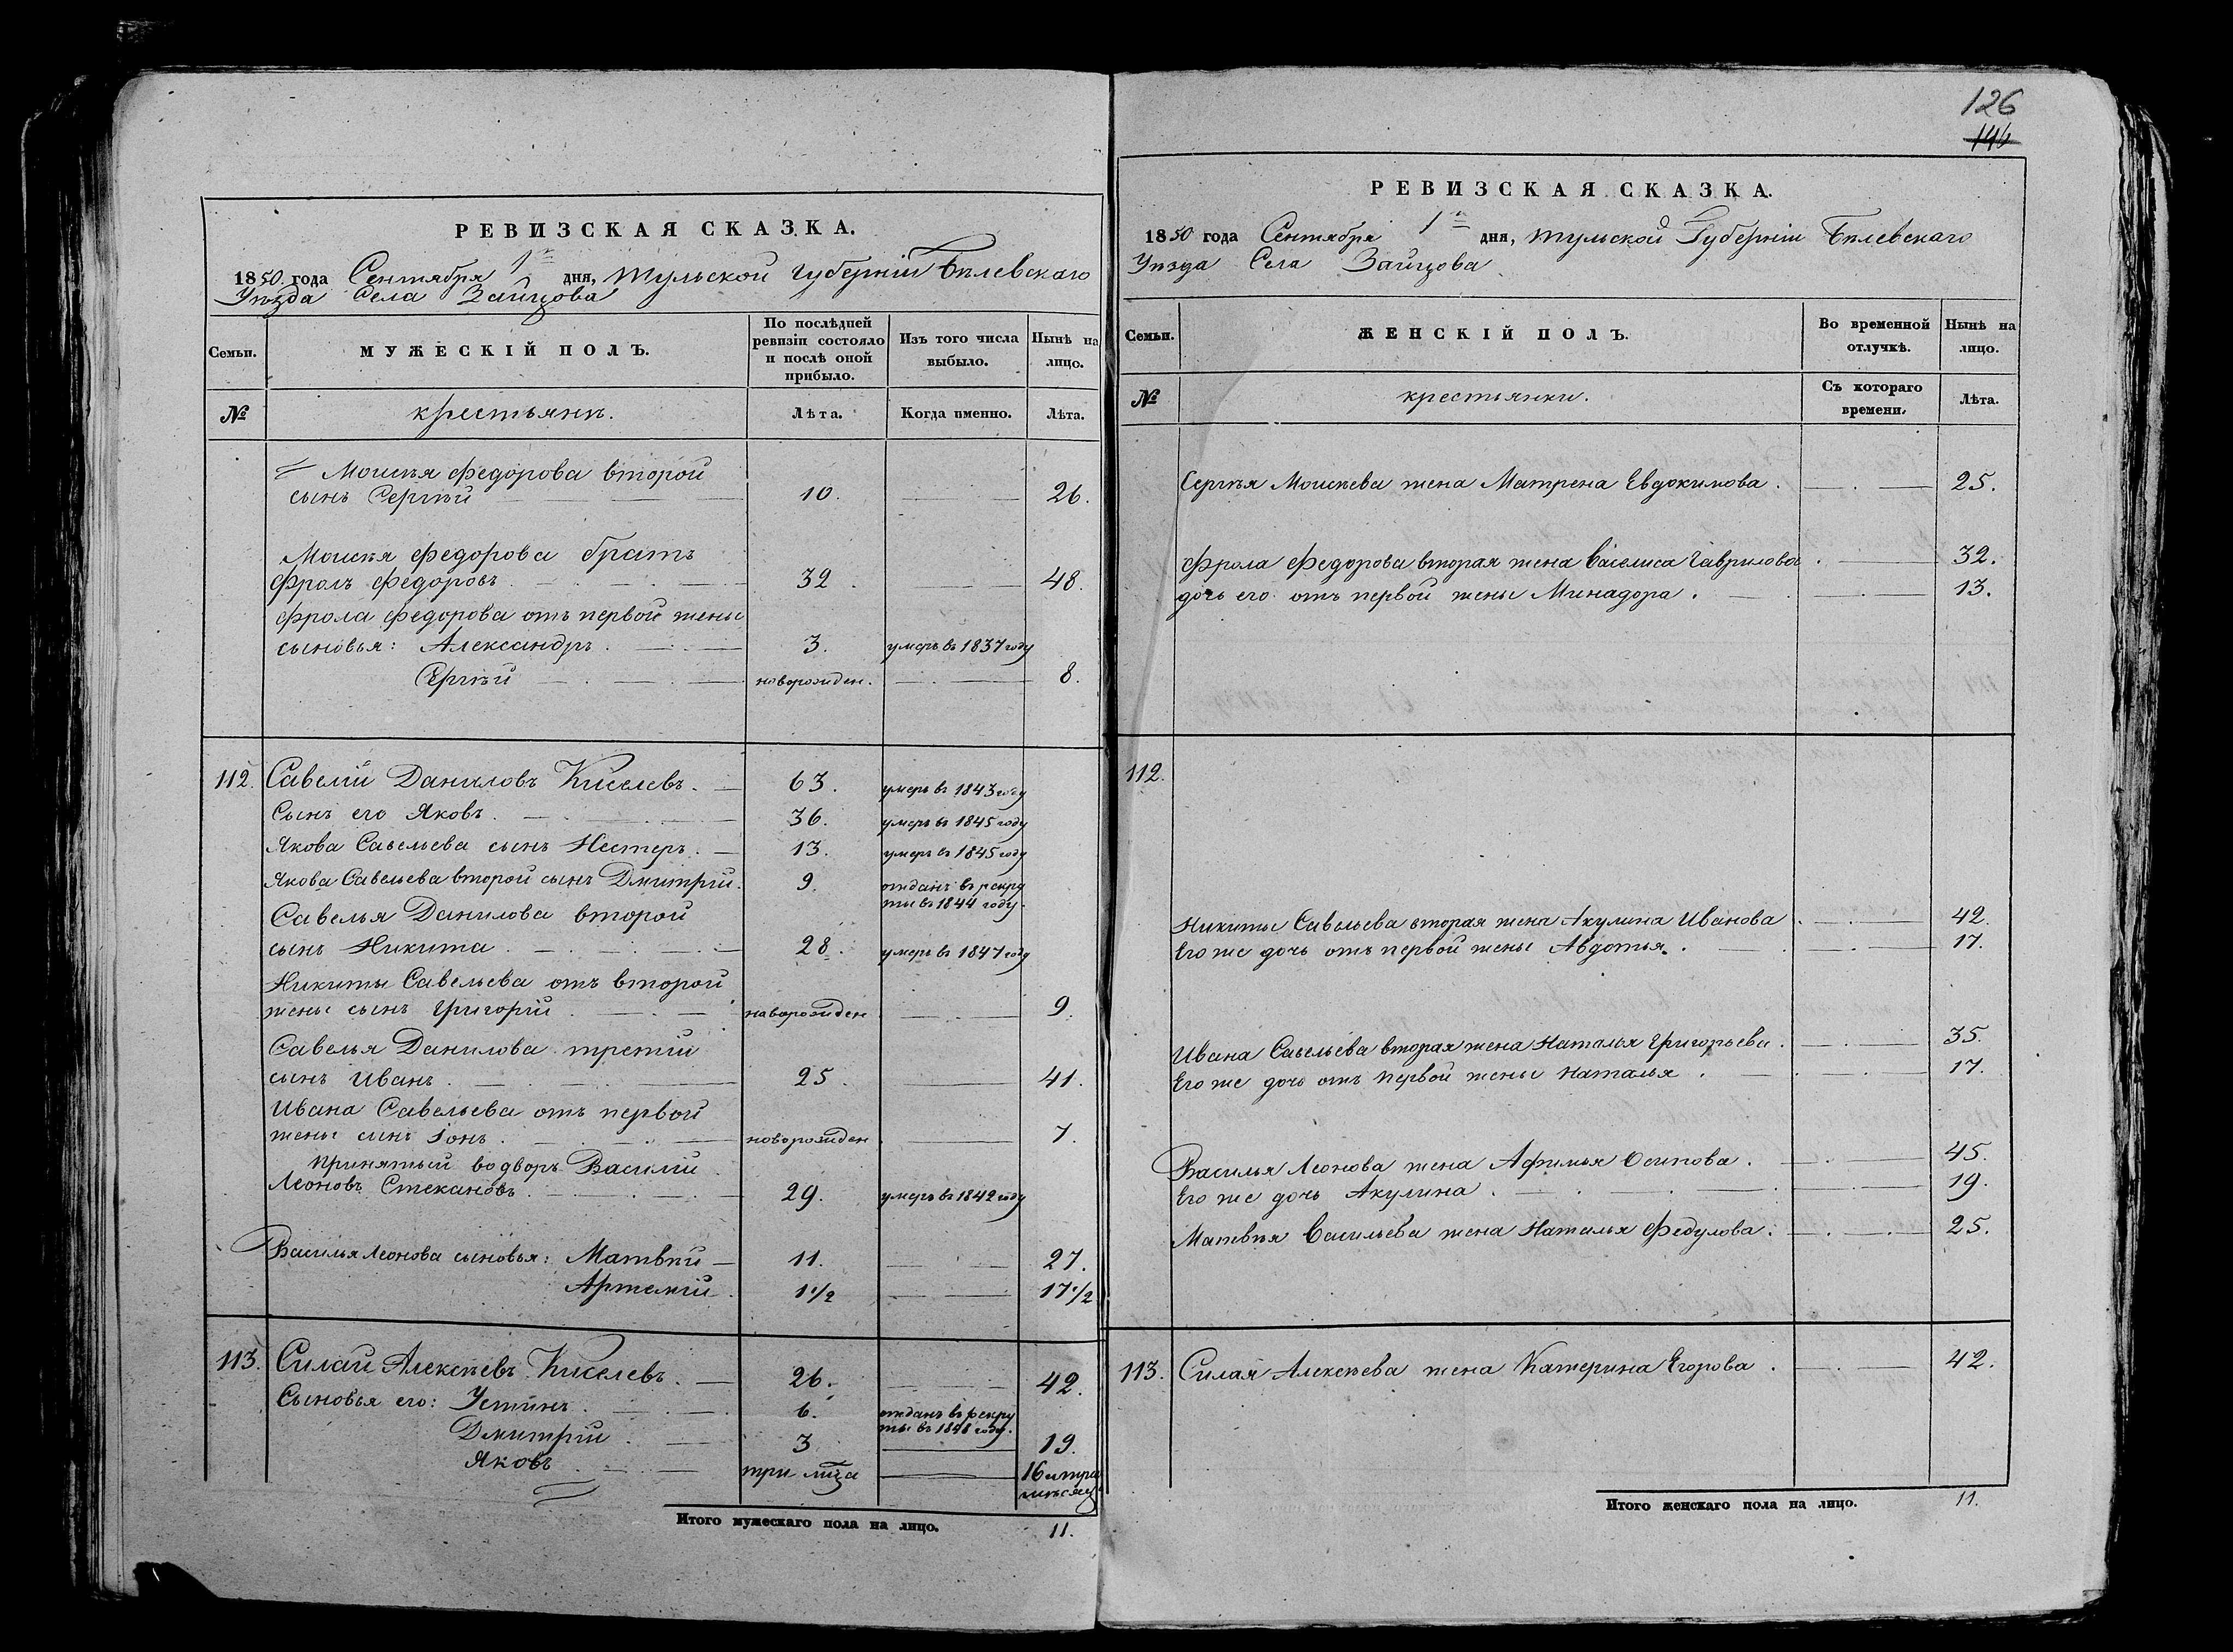 РЕВИЗСКАЯ СКАЗКА.
1850 года Сентября 1го дня, Тульской Губерніи Бѣлевскаго
Уѣзда Села Зайцова
Семьи.
МУЖЕСКІЙ ПОЛЪ.
По послѣдней ревизіи состояло и послѣ оной прибыло.
Изъ того числа выбыло.
Нынѣ на лицо.
№
крестьянѣ.
Лѣта.
Когда именно.
Лѣта.
Моисѣя Федорова второй
сынъ Сергѣй 10. 26.
Моисѣя Федорова братъ
Фролъ Федоровъ. 32 48.
Фрола Федорова отъ первой жены
сыновья: Александръ. 3. умеръ въ 1837 году
Сергѣй новорожден. 8.
112. Савелій Даниловъ Киселевъ. 63. умеръ въ 1843 году
Сынъ его Яковъ. 36. умеръ въ 1845 году
Якова Савельева сынъ Нестеръ. 13. умеръ въ 1845 году
Якова Савельева второй сынъ Дмитрій. 9. отданъ въ рекру
ты въ 1844 году.
Савелья Данилова второй
сынъ Никита. 28. умеръ въ 1847 году
Никиты Савельева отъ второй
жены сынъ Григорій новорожден 9.
Савелья Данилова третій
сынъ Иванъ. 25. 41.
Ивана Савельева отъ первой
жены сынъ Іонъ. новорожден 7.
Принятый во дворъ Василій
Леоновъ Стекановъ. 29. умеръ въ 1842 году
Василья Леонова сыновья: Матвѣй 11. 27.
Артемій 1 1/2 17 1/2
113. Силай Алексѣевъ Киселевъ. 26. 42.
Сыновья его: Устинъ. 6. отданъ въ рекру
ты въ 1848 году.
Дмитрій. 3 19.
Яковъ три мѣца 16 и три
мѣсяц
Итого мужескаго пола на лицо. 11.
126
146
РЕВИЗСКАЯ СКАЗКА.
1850 года Сентября 1го дня, Тульской Губерніи Бѣлевскаго
Уѣзда Села Зайцова
Семьи.
ЖЕНСКІЙ ПОЛЪ.
Во временной отлучкѣ.
Нынѣ на лицо.
№
крестьянки.
Съ котораго времени.
Лѣта.
Сергѣя Моисѣева жена Матрена Евдокимова. 25.
Фрола Федорова вторая жена Васелиса Гаврилова 32.
дочь его отъ первой жены Минадора. 13.
112.
Никиты Савельева вторая жена Акулина Иванова 42.
Его же дочь отъ первой жены Авдотья. 17.
Ивана Савельева вторая жена Наталья Григорьева. 35.
Его же дочь отъ первой жены Наталья. 17.
Василья Леонова жена Афимья Осипова. 45.
Его же дочь Акулина. 19.
Матвѣя Васильева жена Наталья Федулова. 25.
113. Силая Алексѣева жена Катерина Егорова. 42.
Итого женскаго пола на лицо. 11.